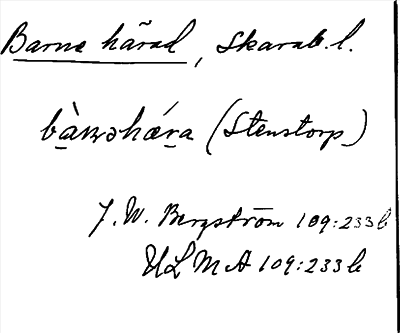 Barne härad, Skarab. l.
bà̱ɴəhǽra̱ (Stenstorp)
J. W. Bergström 109:233b
ULMA 109:233b